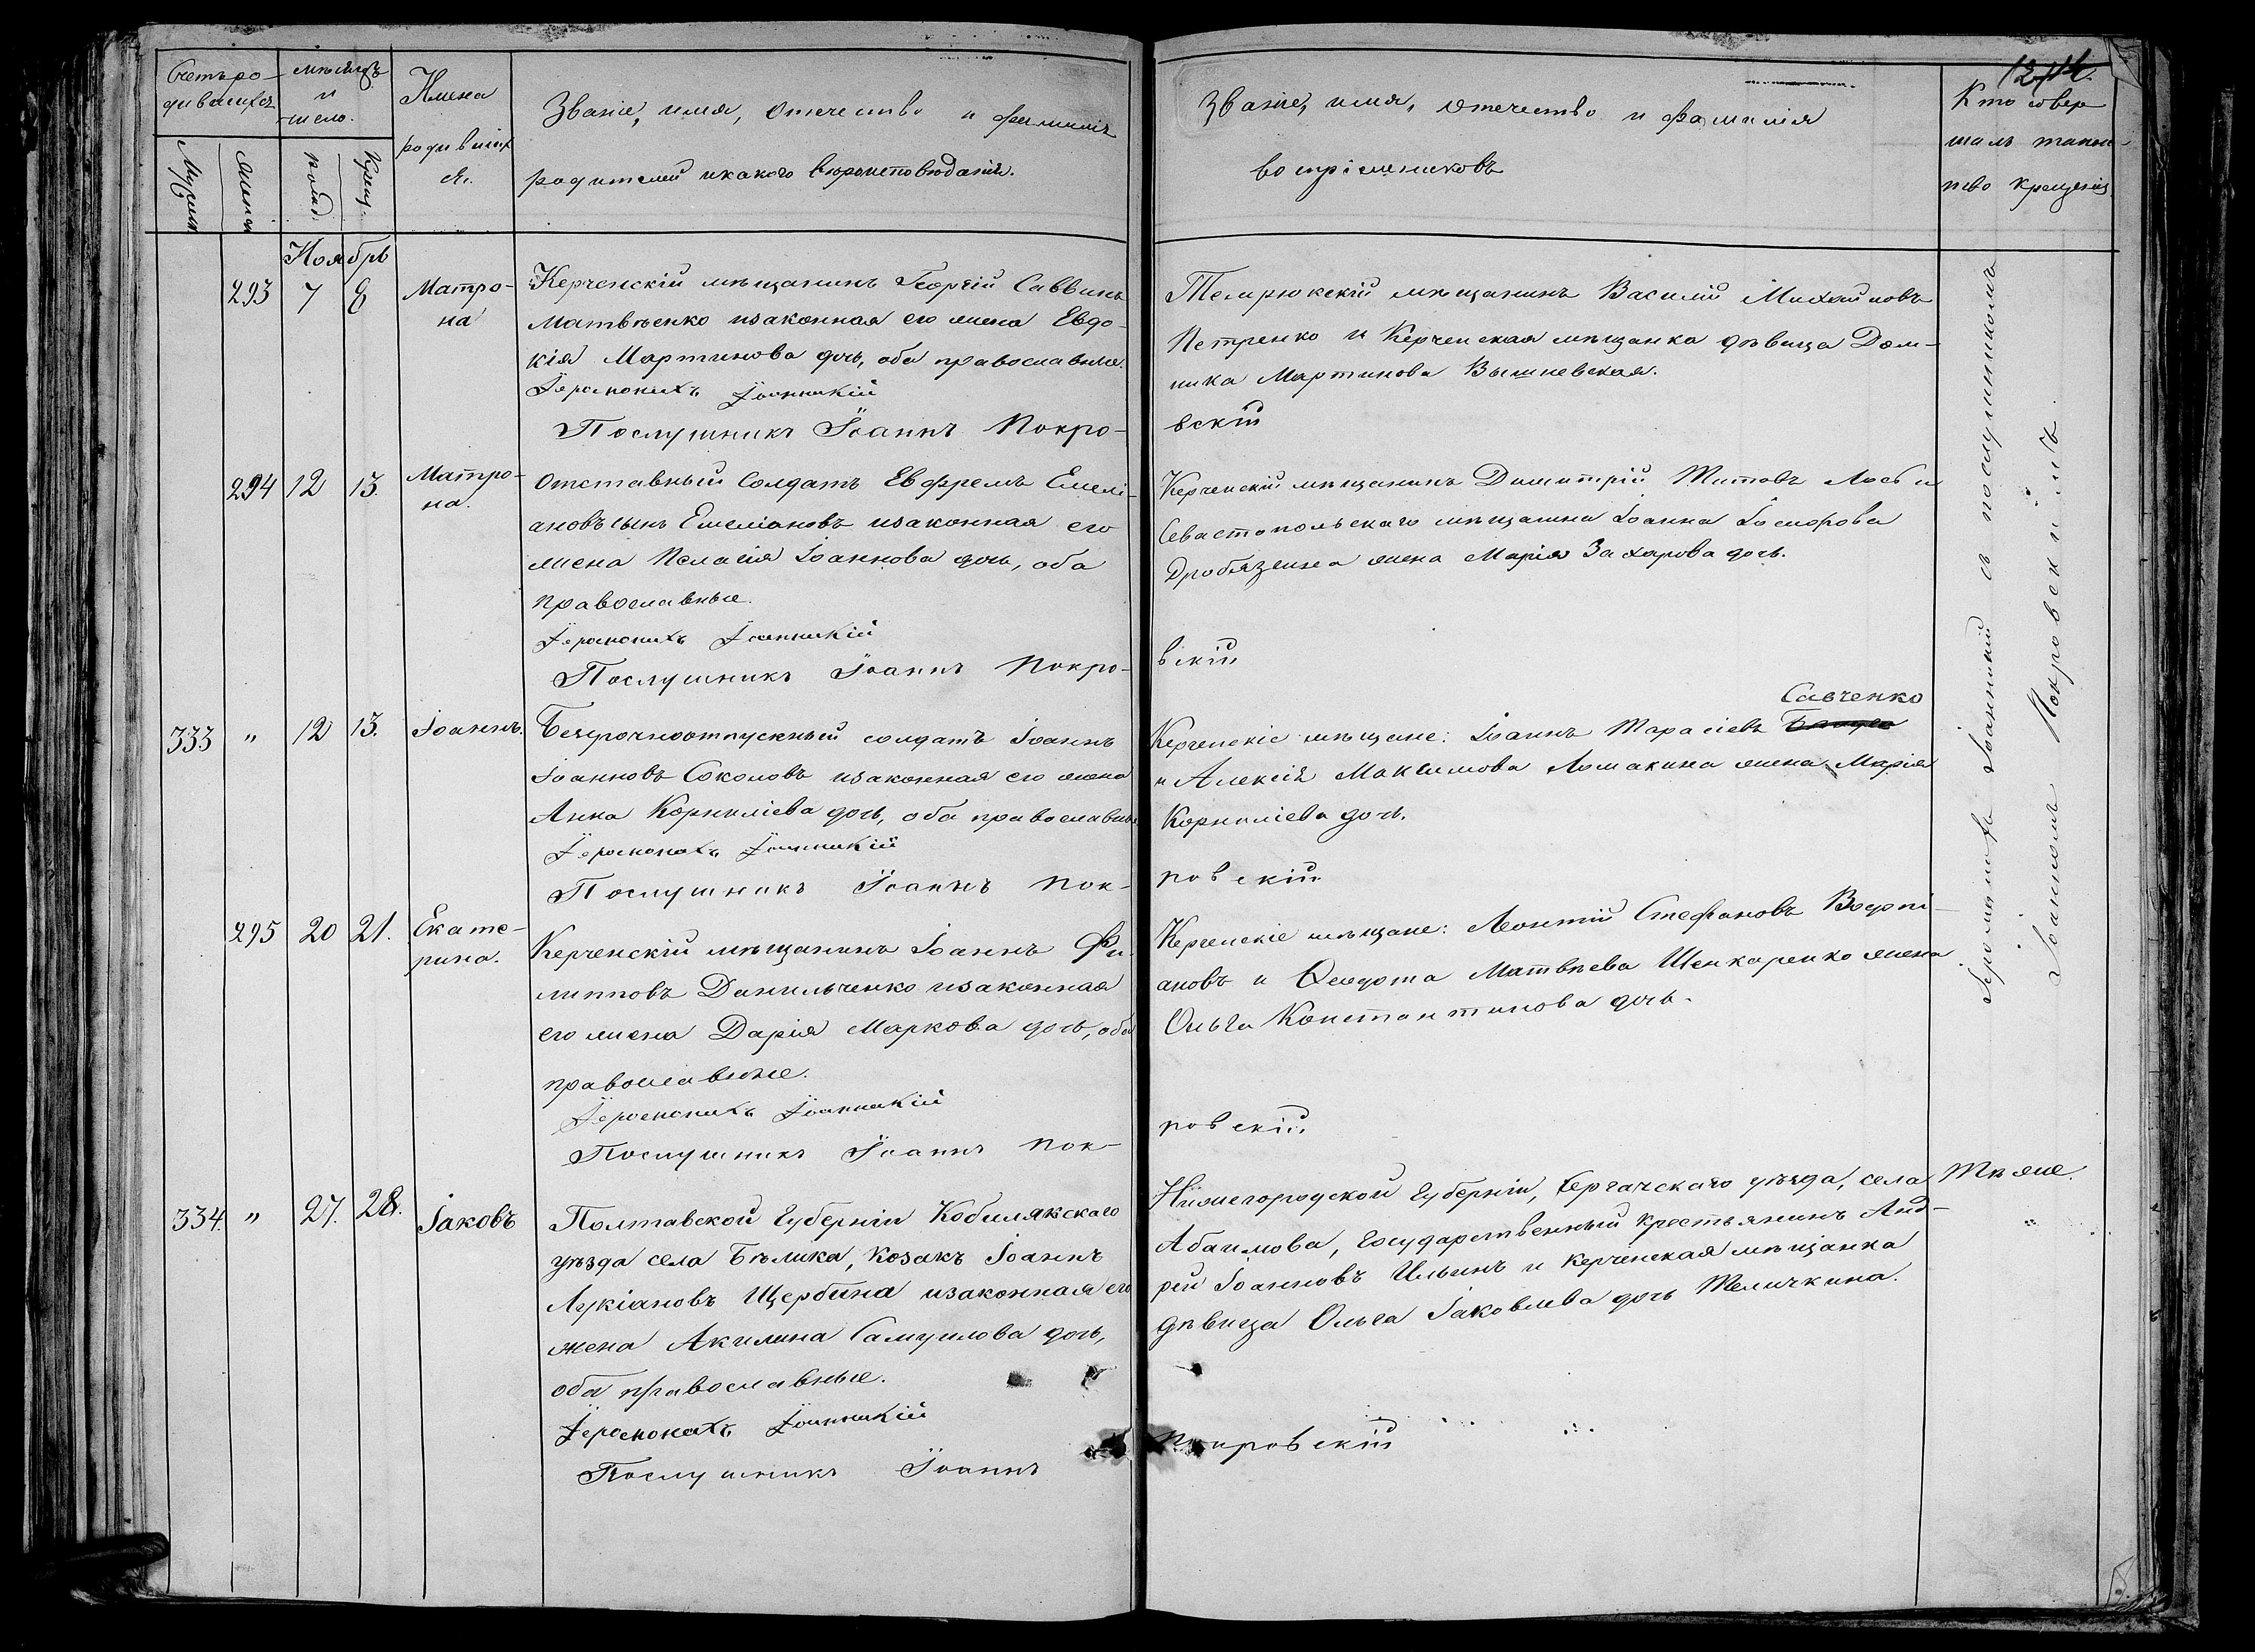 Счетъ ро-
дившихся
мѣсяцъ
и
число.
Имена
родивших
ся.
Званіе, имя, отечество и фамилія
родителей и какого вѣроисповѣданія.
Мужеска
Женска
рожд.
Крещ.
Ноябрь
293 7 8 Матро-
на
Керченскій мѣщанинъ Георгій Саввинъ
Матвѣенко и законная его жена Евдо-
кія Мартинова дочь, оба православные.
Іеромонахъ Іоанникій
Послушникъ Іоаннъ Покро-
294 12 13. Матро-
на.
Отставный Солдатъ Евфремъ Емелі-
ановъ сынъ Емеліановъ и законная его
жена Пелагія Іоаннова дочь, оба
православные.
Іеромонахъ Іоанникій
Послушникъ Іоаннъ Покро-
333 " 12 13. Іоаннъ.
Безсрочноотпускный солдатъ Іоаннъ
Іоанновъ Соколовъ и законная его жена
Анна Корниліева дочь, оба православные
Іеромонахъ Іоанникій
Послушникъ Іоаннъ Пок-
295 20 21. Екате-
рина.
Керченскій мѣщанинъ Іоаннъ Фи-
липповъ Данильченко и законная
его жена Дарія Маркова дочь, оба
православные.
Іеромонахъ Іоанникій
Послушникъ Іоаннъ Пок-
334. " 27. 28. Іаковъ
Полтавской Губерніи Кобилякскаго
уѣзда села Бѣлика, Козакъ Іоаннъ
Лукіановъ Щербина и законная его
жена Акилина Самуилова дочь,
оба православные.
Іеромонахъ Іоанникій
Послушникъ Іоаннъ
Званіе, имя, отечество и фамилія
воспріемниковъ
Кто совер
шалъ таин-
ство крещенія
Темрюкскій мѣщанинъ Василій Михаиловъ
Петренко и Керченская мѣщанка дѣвица Дом-
ника Мартинова Вышневская.
вскій
Керченскій мѣщанинъ Димитрій Титовъ Лось и
Севастопольскаго мѣщанина Іоанна
жена Марія Захарова дочь.
вскій
Савченко
Керченскіе мѣщане: Іоаннъ Тарасіевъ
и Алексія Максимова Ломакина жена Марія
Корниліева дочь.
ровскій
Керченскіе мѣщане: Леонтій Стефановъ Водопі-
ановъ и Ѳеодота Матвѣева Шенкаренко жена
Ольга Константинова дочь.
ровскій
Нижегородской Губерніи, Сергачскаго уѣзда, села
Абаимова, Государственный крестьянинъ Анд-
рей Іоанновъ Ильинъ и Керченская мѣщанка
дѣвица Ольга Іаковлева дочь Теличкина.
Покровскій
Іеромонахъ Іоанникій съ послушникомъ
Іоанномъ Покровскимъ.
Тѣ же.